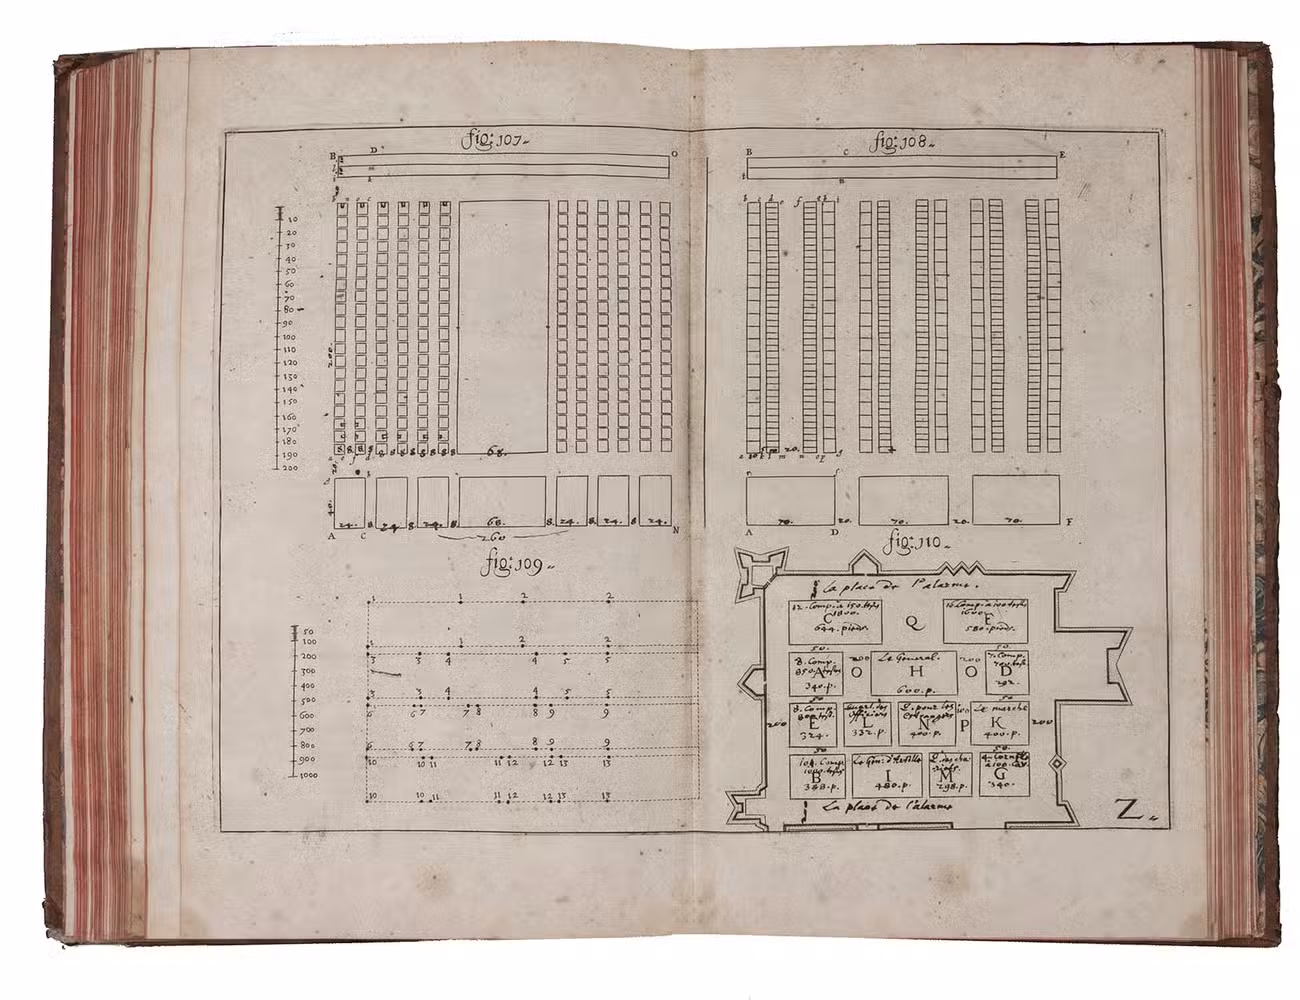 fig: 107
B D O
10
20
30
40
50
60
70
80
90
100
110
120
130
140
150
160
170
180
190
200
200
8 8 8 8 8 8 8 8 8 68.
24. 8 24. 8 24. 8 68. 8 24. 8 24. 8 24.
A C 260 N
fig: 108
B C E
20.
70. 20. 70. 20. 70.
A D F
fig: 109
50
100
200
300
400
500
600
700
800
900
1000
1 1 2 2
1 1 2 2
3 3 4 4 5 5
3 3 4 4 5 5
6 6 7 7 8 8 9 9
6 6 7 7 8 8 9 9
10 10 11 11 12 12 13 13
10 10 11 11 12 12 13 13
fig: 110
La place de l'alarme.
12. Comp. a 150 testes
1800.
C
644. pieds.
Q
16 Comp. a 100 testes
1600
F
580. pieds.
50. 50.
8. Comp.
A
340. p.
200
O
Le General.
H
600. p.
200
O
7. Comp.
D
292.
50 50
200
8. Comp.
E
324.
Officiers
L
332. p.
P. pour les
N
400. p.
100
P
Le marche
K
400. p.
200
50 50.
10. Comp.
B
388. p.
Le Gen: d'Artille
I
480. p.
M
298. p.
G
340.
La place de l'alarme
Z